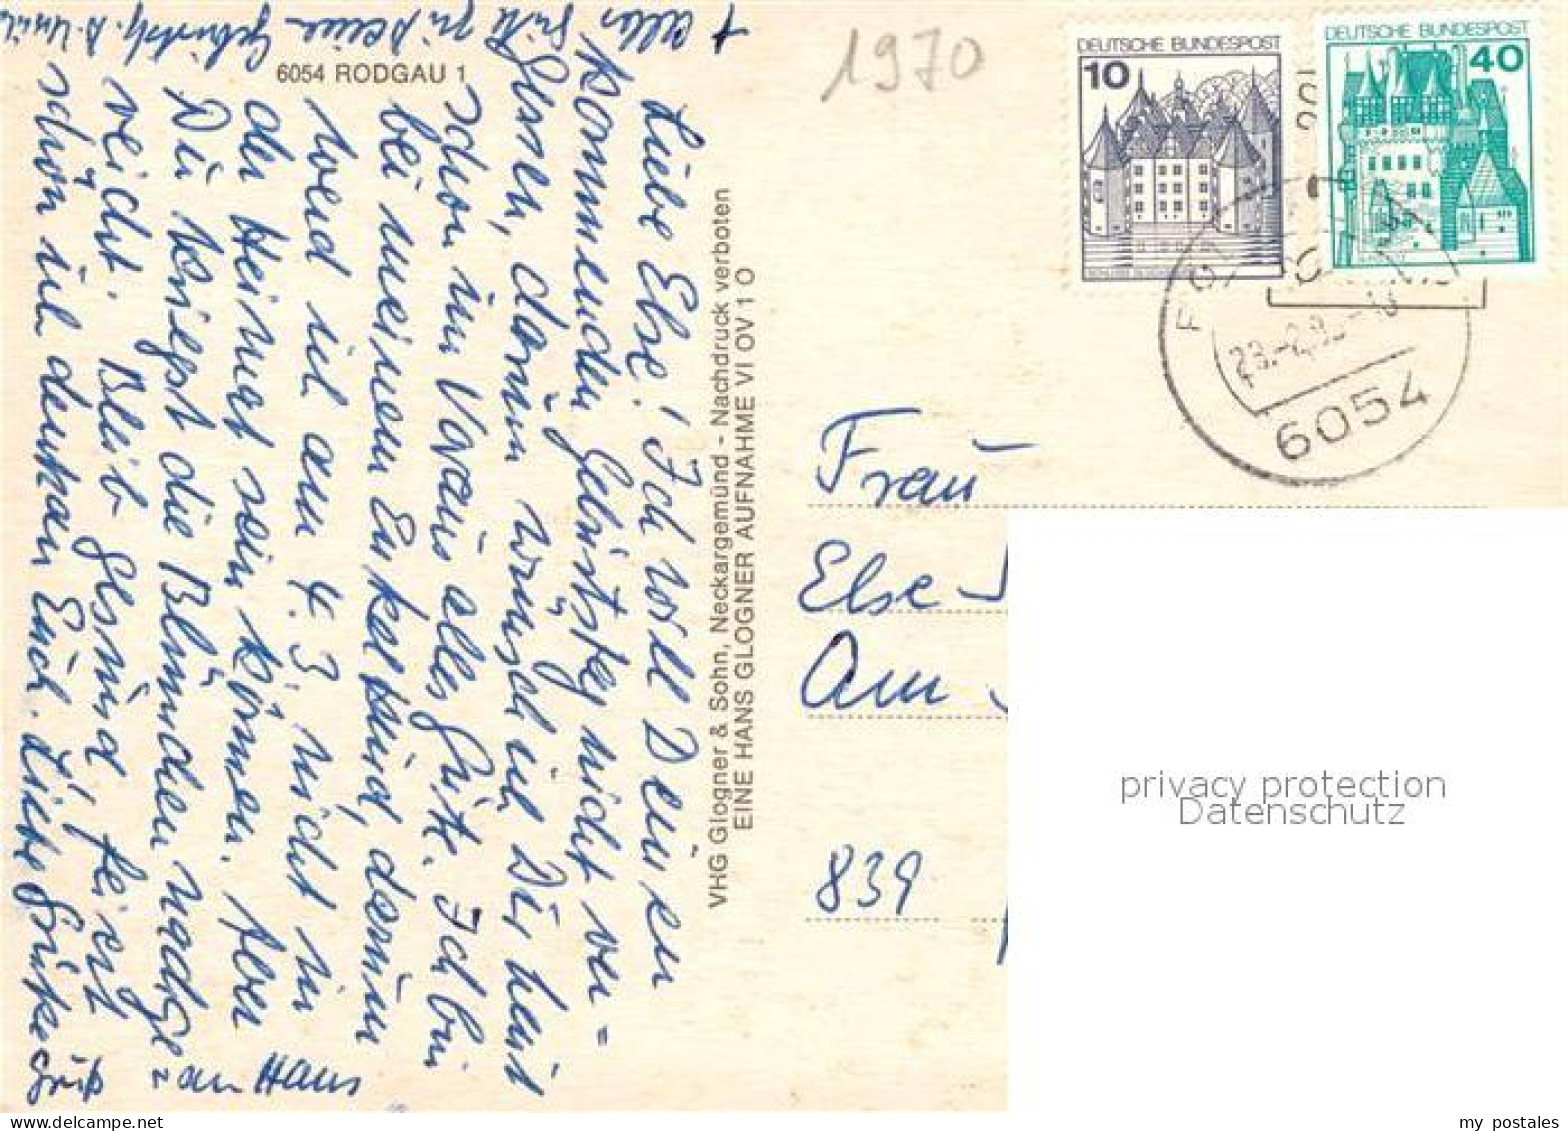 1970
DEUTSCHE BUNDESPOST
10
DEUTSCHE BUNDESPOST
40
6054
6054 RODGAU 1
VHG Glogner & Sohn, Neckargemünd - Nachdruck verboten
EINE HANS GLOGNER AUFNAHME VI OV 1 O
Liebe Else! Ich will Deinen
kommenden Geburtstag nicht ver=
gessen, darum wünsch ich Dir heut
schon im Voraus alles Gute. Ich bin
bei meinem Enkelkind, darum
werd ich am 4. 3. nicht in
der Heimat sein können. Aber
Du kriegst die Blümchen nachge=
reicht. Bleib gesund, feiert
schön ich denk an Euch. Liebe Grüße
Gruß an Hans
+ Alles Gute zu Deinem Geburtstg.
Frau
Else
Am
839
privacy protection
Datenschutz
my postales